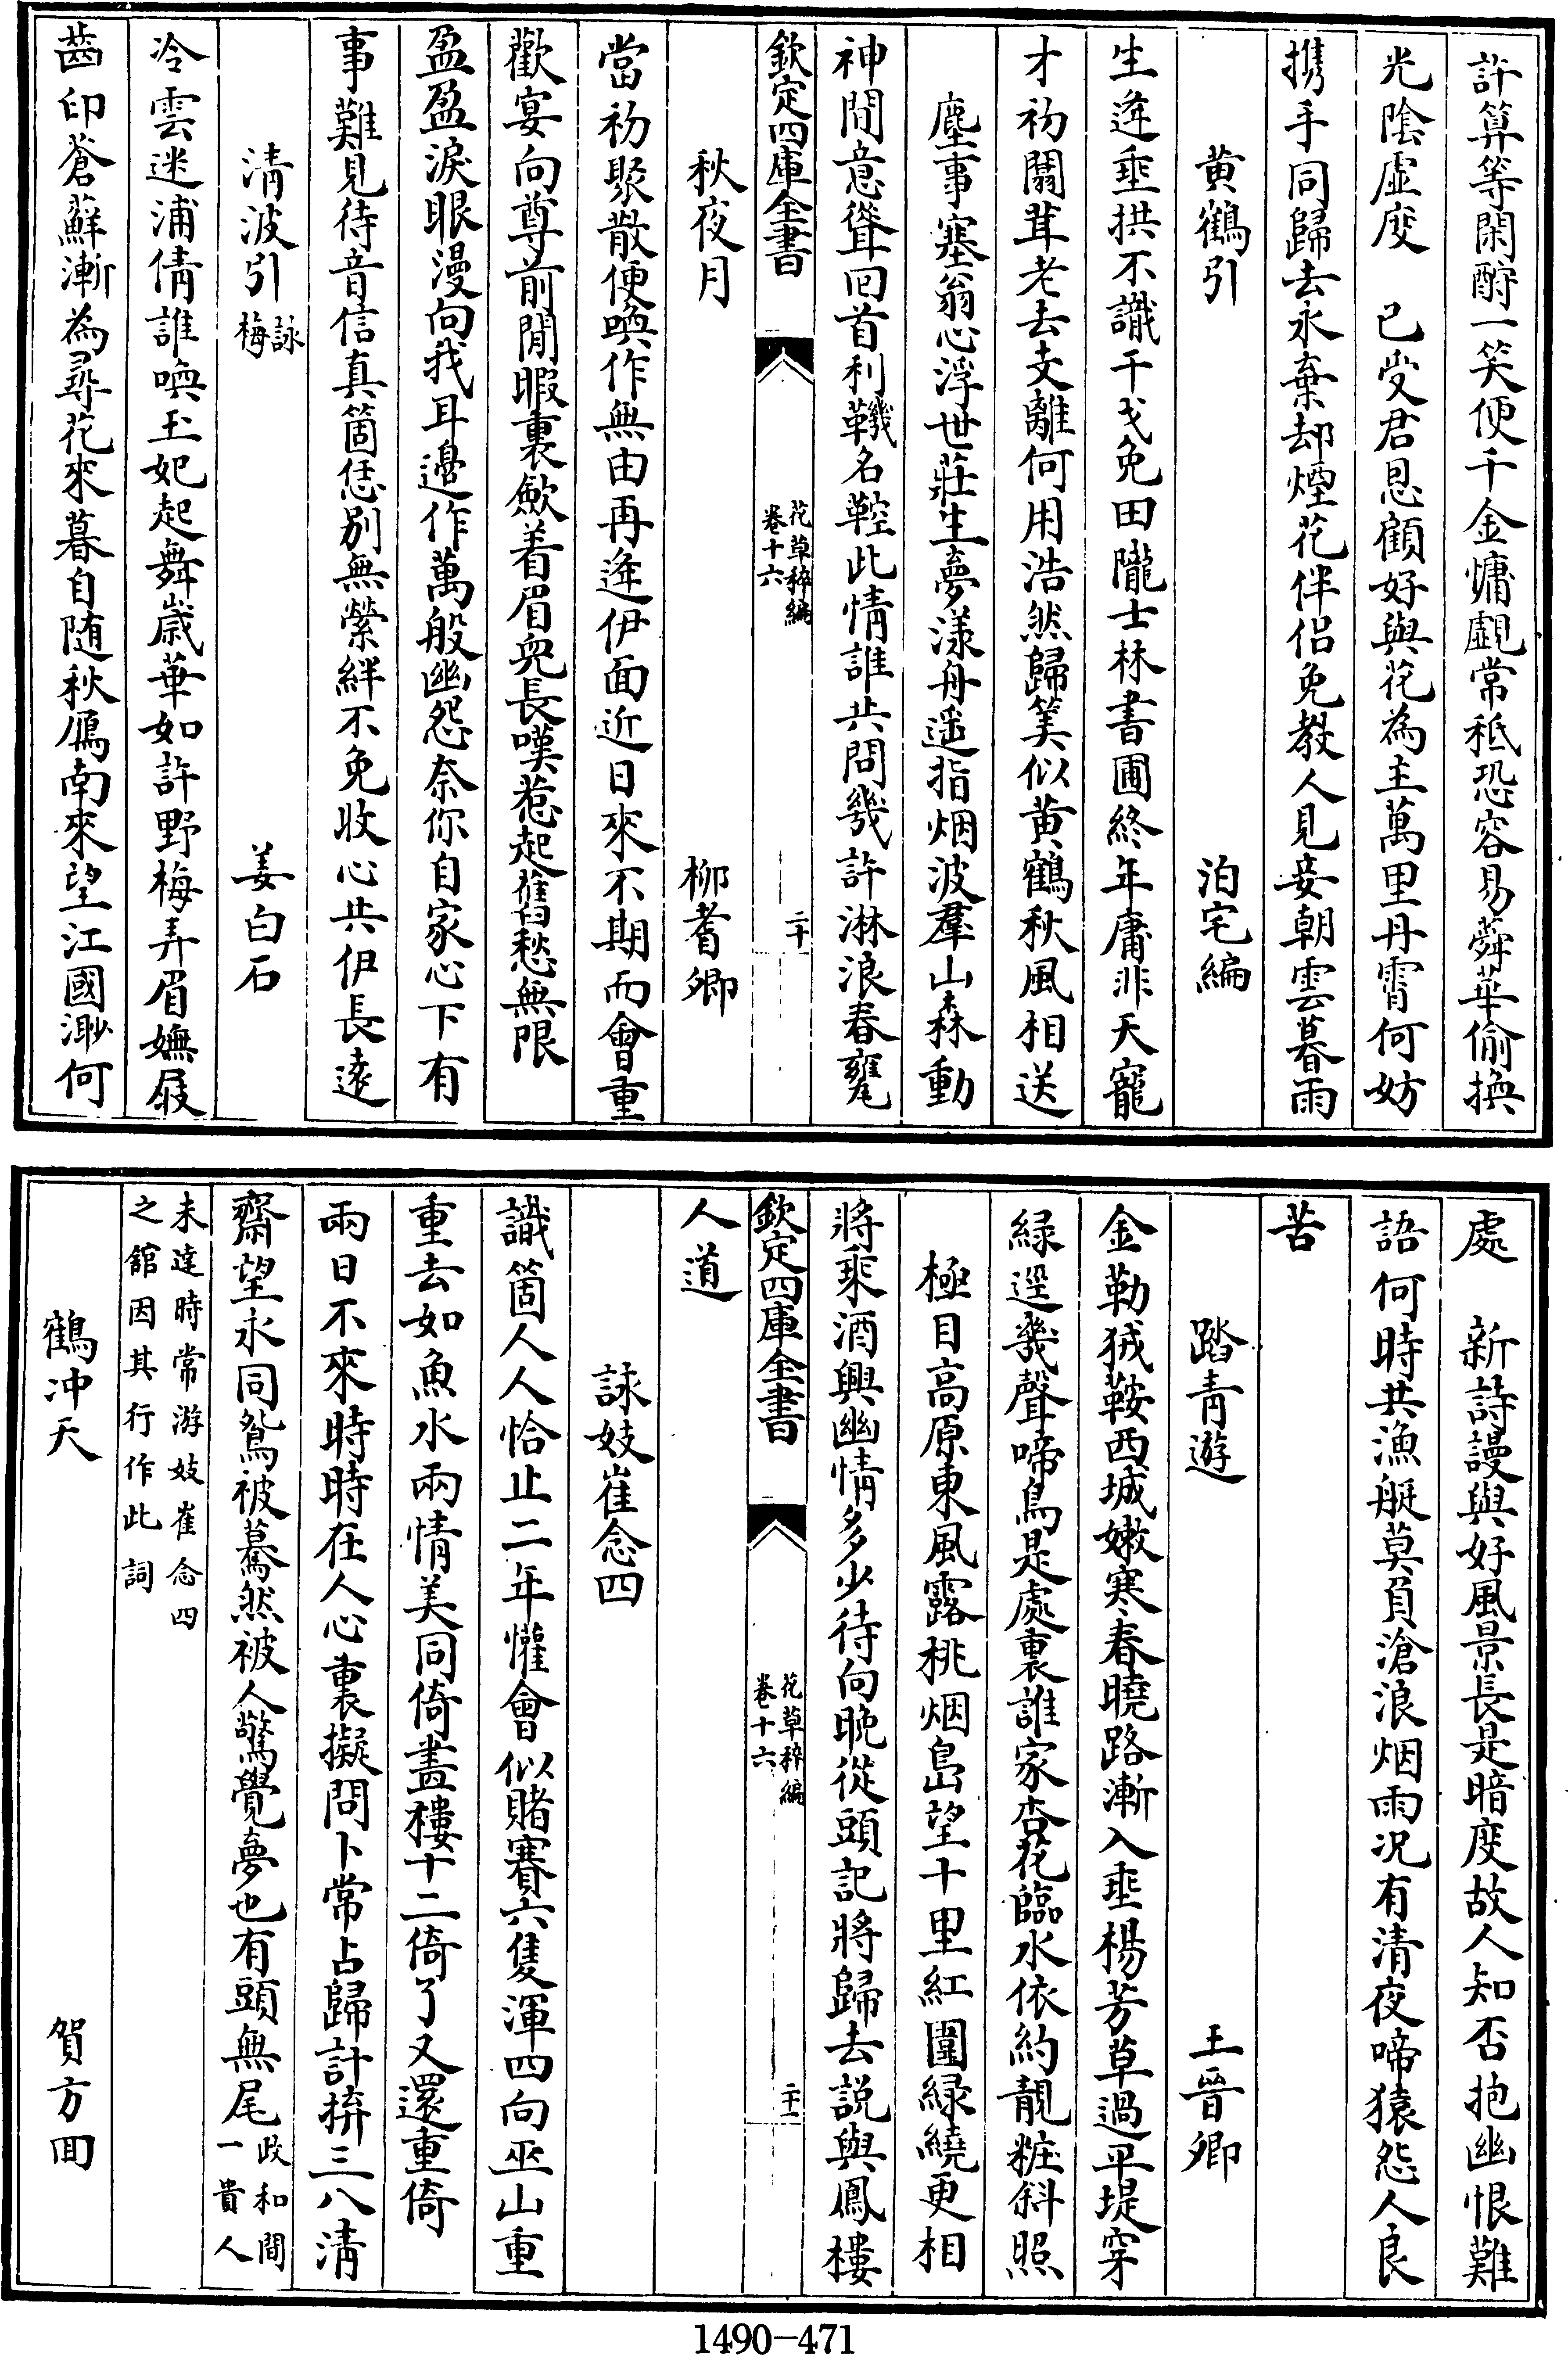 許算等閑酧一笑便千金慵覷常秪恐容易蕣華偷換
光陰虚度　已受君恩顧好與花為主萬里丹霄何妨
携手同歸去永棄却煙花伴侣免教人見妾朝雲暮雨
黄鶴引　泊宅編
生逄垂拱不識干戈免田隴士林書圃終年庸非天寵
才初闒茸老去支離何用浩然歸筭似黄鶴秋風相送
塵事塞翁心浮世莊生夢漾舟遥指烟波羣山森動
神閒意聳回首利鞿名鞚此情誰共問幾許淋浪春甕
欽定四庫全書　花草稡編卷十六　二十
秋夜月　柳耆卿
當初聚散便喚作無由再逄伊面近日來不期而會重
歡宴向尊前閒暇裏歛着眉兒長嘆惹起舊愁無限
盈盈淚眼漫向我耳邊作萬般幽怨奈你自家心下有
事難見待音信真箇恁别無縈絆不免收心共伊長遠
清波引詠梅　姜白石
冷雲迷浦倩誰喚玉妃起舞嵗華如許野梅弄眉嫵屐
齒印蒼蘚漸為尋花來暮自随秋鴈南來望江國渺何
處　新詩謾與好風景長是暗度故人知否抱幽恨難
語何時共漁艇莫負滄浪烟雨况有清夜啼猿怨人良
苦
踏青遊　王晉卿
金勒狨鞍西城嫩寒春曉路漸入垂楊芳草過平堤穿
緑逕幾聲啼鳥是處裏誰家杏花臨水依約靚粧斜照
極目高原東風露桃烟島望十里紅圍緑繞更相
將乘酒興幽情多少待向晚從頭記將歸去説與鳳樓
欽定四庫全書　花草稡編卷十六　二十一
人道
詠妓崔念四
識箇人人恰止二年懽會似賭賽六隻渾四向巫山重
重去如魚水兩情美同倚畫樓十二倚了又還重倚
兩日不來時時在人心裏擬問卜常占歸計拚三八清
齋望永同鴛被驀然被人驚覺夢也有頭無尾政和間一貴人
未達時常游妓崔念四之舘因其行作此詞
鶴冲天　賀方回
1490-471